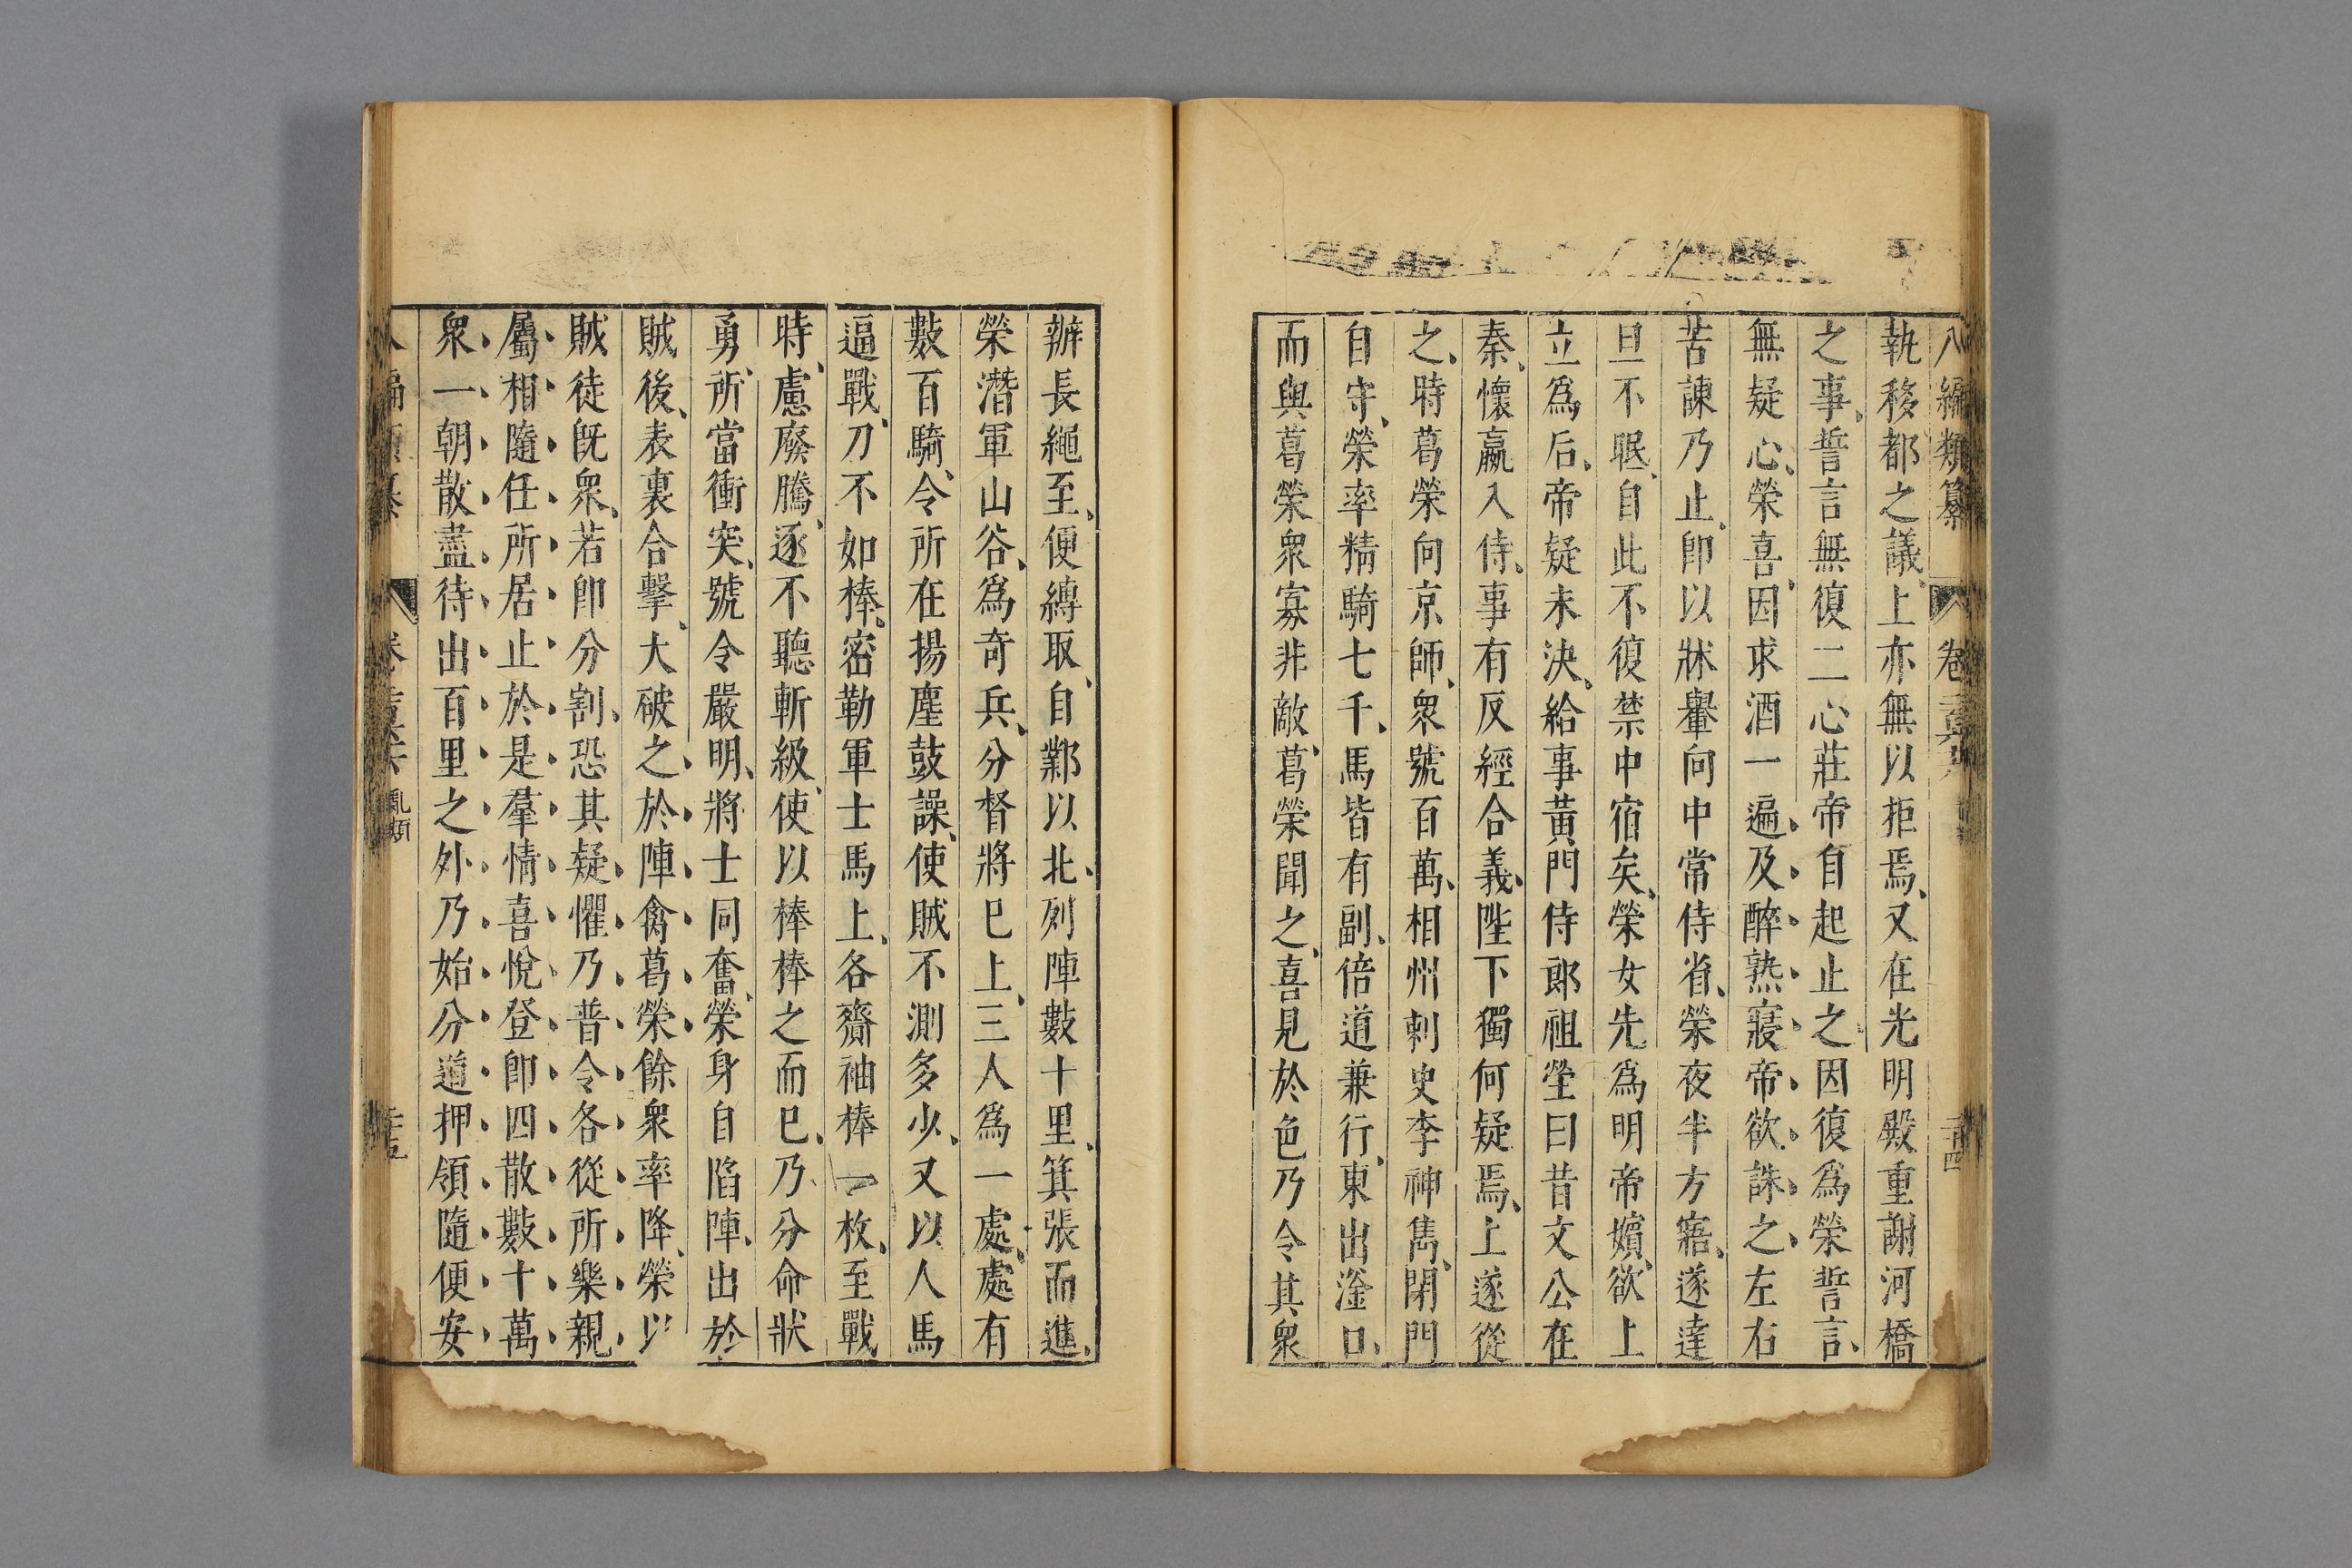 八編類纂 卷
執移都之議上亦無以拒焉又在光明殿重謝河橋
之事誓言無復二心莊帝自起止之因復爲榮誓言
無疑心榮喜因求酒一遍及醉熟寢帝欲誅之左右
苦諫乃止卽以牀轝向中常侍省榮夜半方寤遂達
旦不眠自此不復禁中宿矣榮女先爲明帝嬪欲上
立爲后帝疑未決給事黃門侍郎祖瑩曰昔文公在
秦懷嬴入侍事有反經合義陛下獨何疑焉上遂從
之時葛榮向京師衆號百萬相州刺史李神雋閉門
自守榮率精騎七千馬皆有副倍道兼行東出滏口
而與葛榮衆寡非敵葛榮聞之喜見於色乃令其衆
辦長繩至便縛取自鄴以北列陣數十里箕張而進
榮潛軍山谷爲奇兵分督將已上三人爲一處處有
數百騎令所在揚塵鼓譟使賊不測多少又以人馬
逼戰刀不如棒密勒軍士馬上各齎袖棒一枚至戰
時慮廢騰逐不聽斬級使以棒棒之而已乃分命狀
勇所當衝突號令嚴明將士同奮榮身自陷陣出於
賊後表裏合擊大破之於陣禽葛榮餘衆率降榮以
賊徒旣衆若卽分割恐其疑懼乃普令各從所樂親
屬相隨任所居止於是羣情喜悅登卽四散數十萬
衆一朝散盡待出百里之外乃始分道押領隨便安